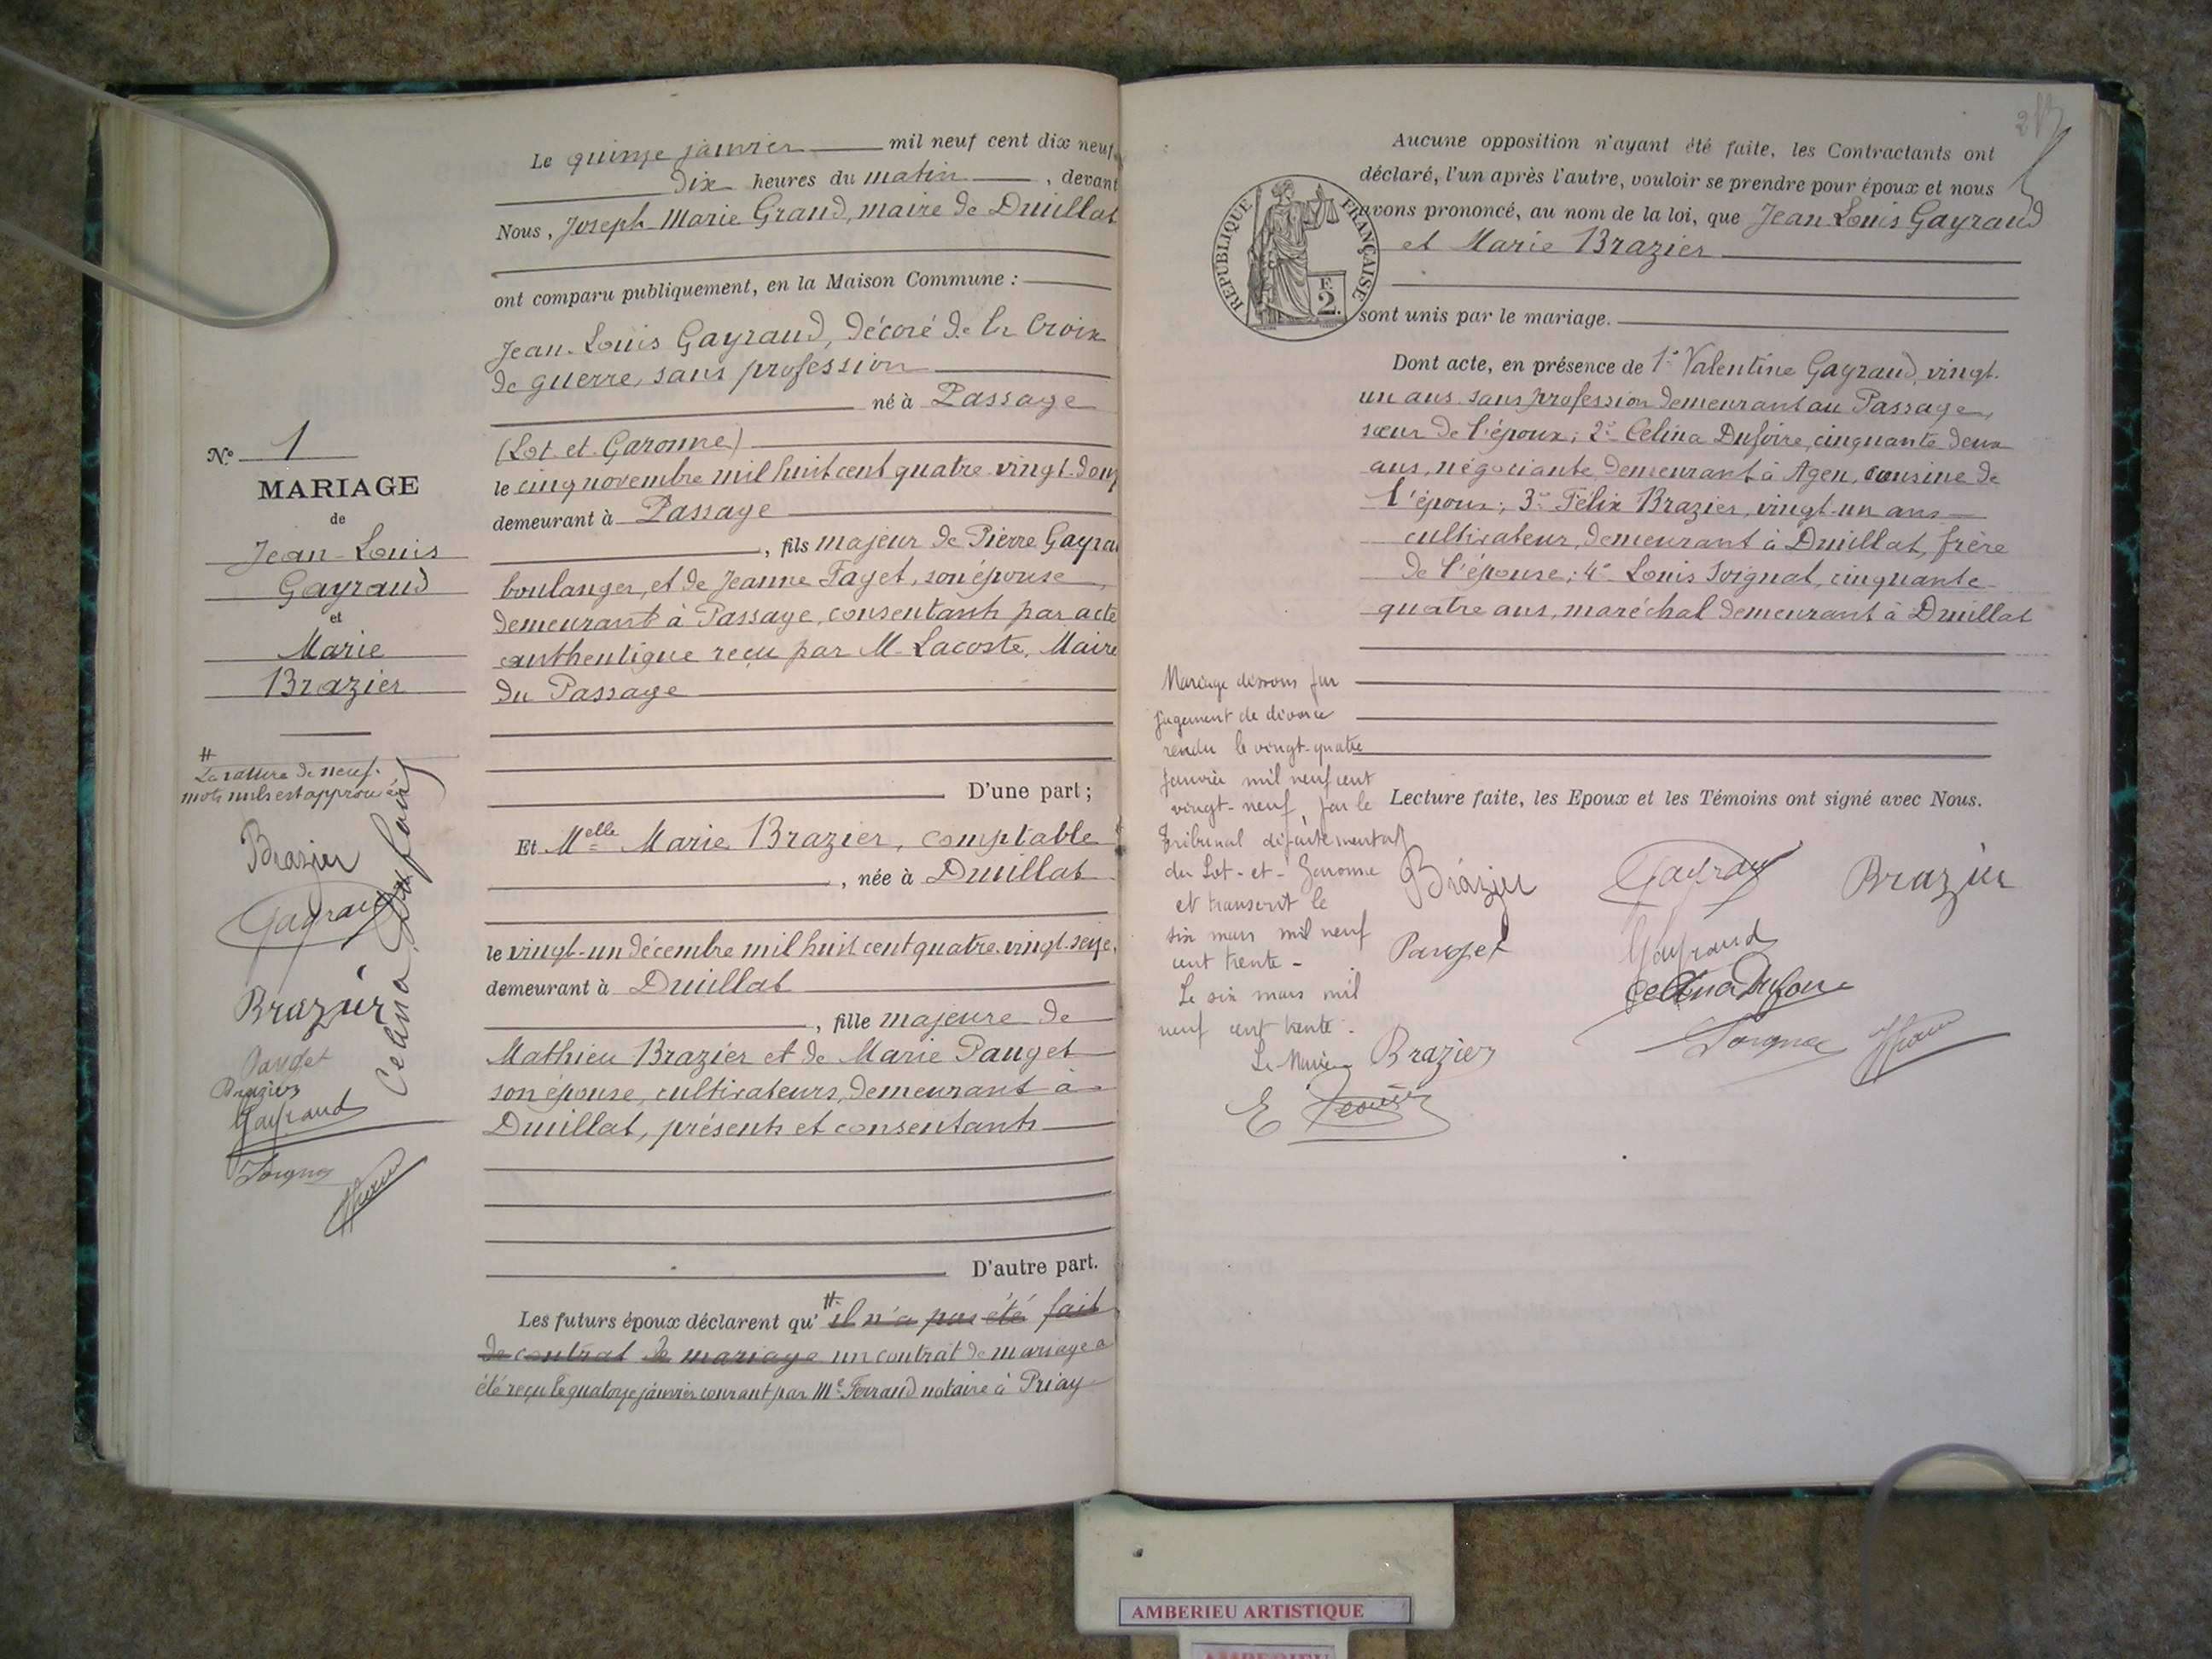 Le quinze janvier mil neuf cent dix neuf
Dix heures du matin, devant
Nous, Joseph Marie Grand, maire de Druillat
ont comparu publiquement, en la Maison Commune :
Jean-Louis Gayraud, décoré de la Croix
de guerre, sans profession
né à Passage
(Lot et Garonne)
le cinq novembre mil huit cent quatre-vingt-douz
demeurant à Passage
, fils majeur de Pierre Gayra
boulanger, et de Jeanne Faget, son épouse,
demeurant à Passage, consentants par acte
authentique reçu par M. Lacoste, Maire
du Passage
D'une part ;
Et Melle Marie Brazier, comptable
, née à Druillat
le vingt-un décembre mil huit cent quatre-vingt-seize,
demeurant à Druillat
, fille majeure de
Mathieu Brazier et de Marie Pauget
son épouse, cultivateurs, demeurant à
Druillat, présents et consentants
D'autre part.
Les futurs époux déclarent qu' # il n'a pas été fait
de contrat de mariage un contrat de mariage a
été reçu le quatorze janvier courant par Me Ferraud notaire à Priay
N° 1
MARIAGE
de
Jean-Louis
Gayraud
et
Marie
Brazier
#
La rature de neuf
mots nuls est approuvée
Brazier
Gayraud
Celina Dufour
Brazier
Pauget
Brazier
Gayraud
213
Aucune opposition n'ayant été faite, les Contractants ont
déclaré, l'un après l'autre, vouloir se prendre pour époux et nous
avons prononcé, au nom de la loi, que Jean-Louis Gayraud
et Marie Brazier
sont unis par le mariage.
REPUBLIQUE FRANÇAISE
F.
2.
Dont acte, en présence de 1° Valentine Gayraud, vingt-
un ans, sans profession demeurant au Passage,
sœur de l'époux ; 2° Celina Dufoire, cinquante deux
ans, négociante, demeurant à Agen, cousine de
l'époux ; 3° Félix Brazier, vingt-un ans
cultivateur, demeurant à Druillat, frère
de l'épouse ; 4° Louis Soignat, cinquante-
quatre ans, maréchal demeurant à Druillat
Mariage dissous par
jugement de divorce
rendu le vingt-quatre
janvier mil neuf cent
vingt-neuf, par le
Tribunal départemental
du Lot-et-Garonne
et transcrit le
six mars mil neuf
cent trente -
Le six mars mil
neuf cent trente -
Le Maire
Lecture faite, les Epoux et les Témoins ont signé avec Nous.
Brazier Gayraud Brazier
Pauget Gayraud
Celina Dufour
Brazier
AMBERIEU ARTISTIQUE
AMBERIEU